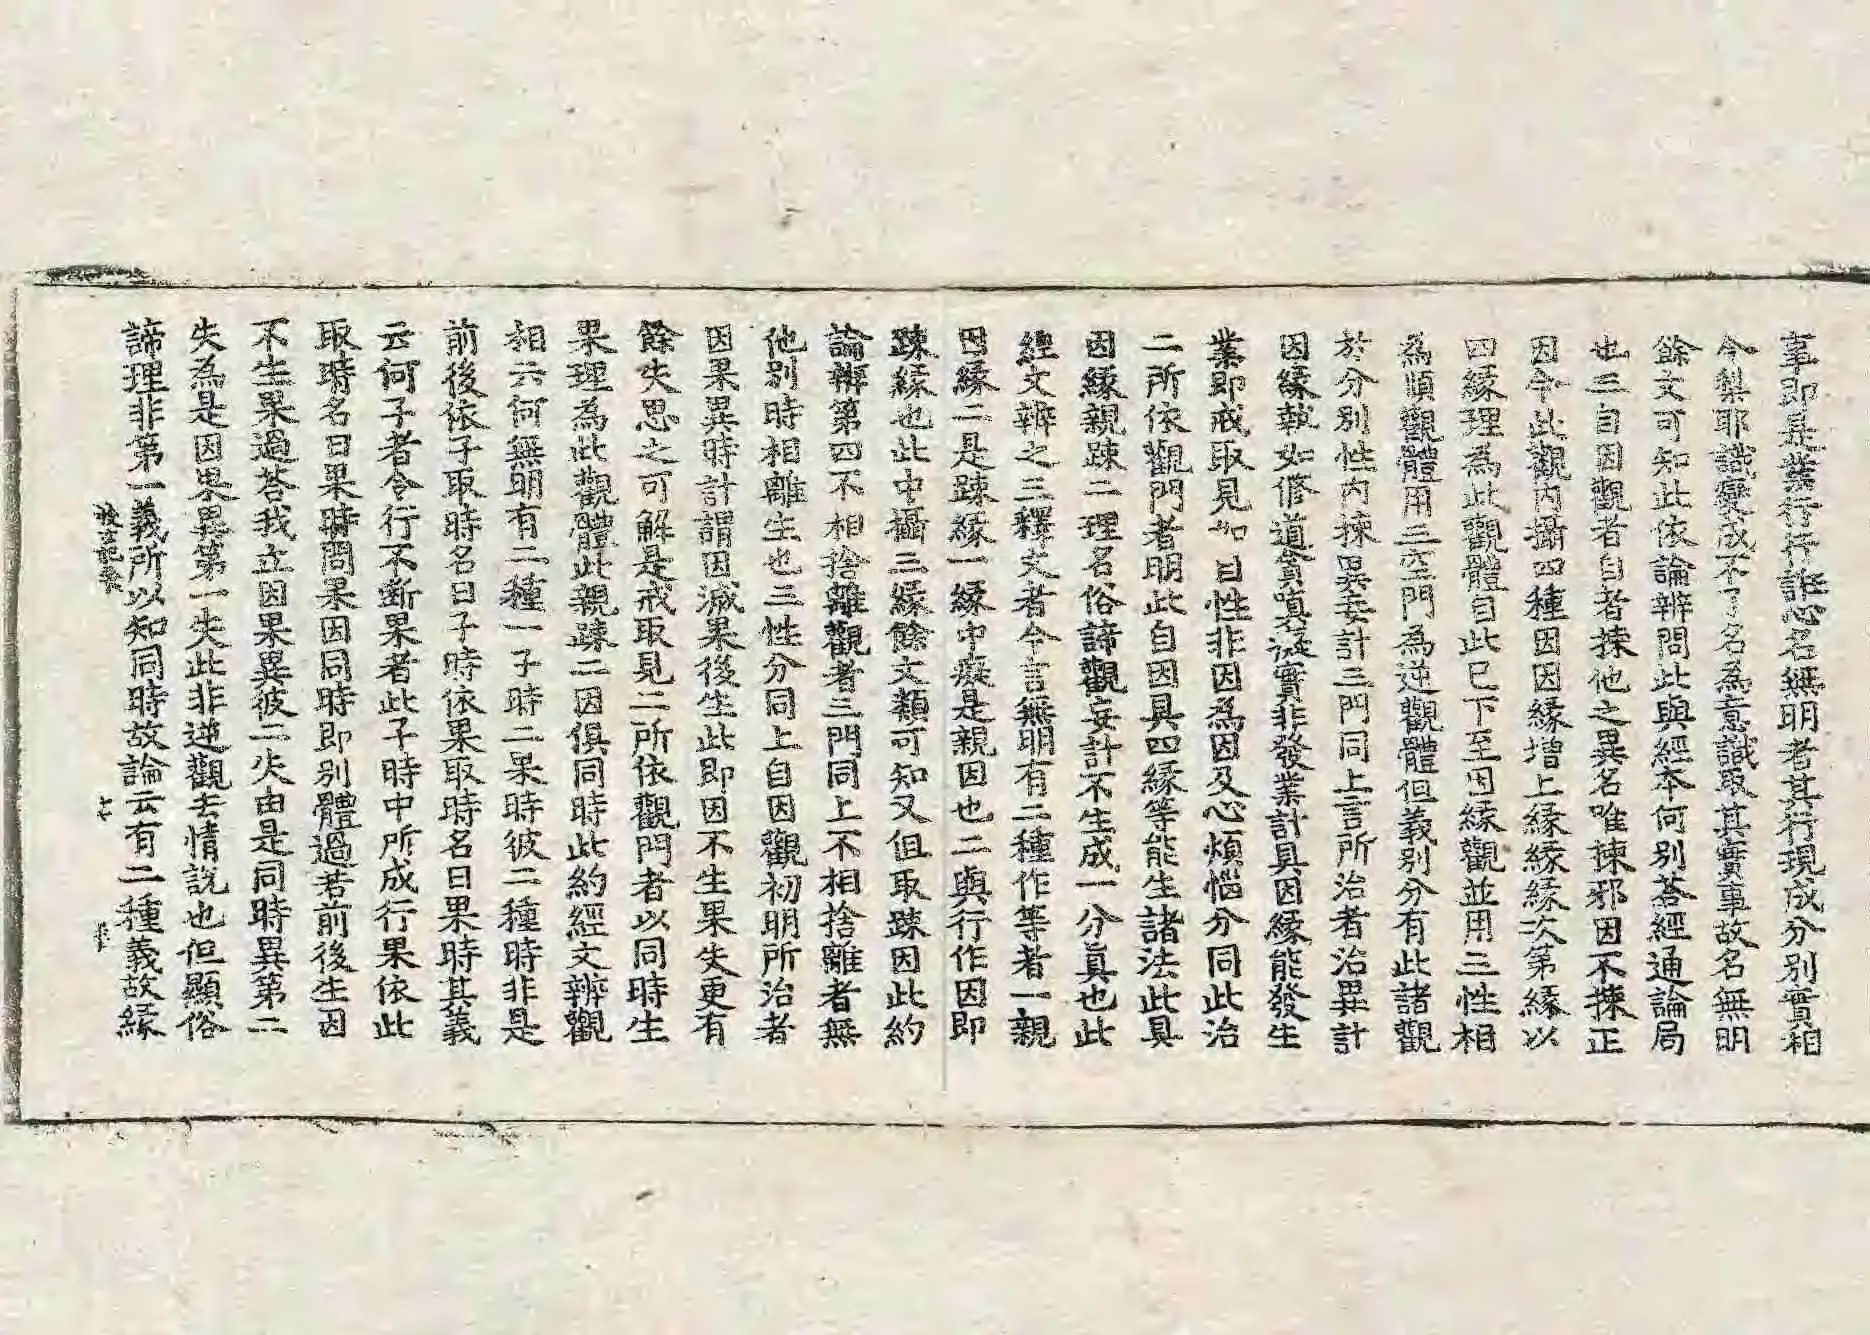 事即是業行行誰心名無明者其行現成分別實相
今梨耶識變成不了名為意識取其實事故名無明
餘文可知此依論辨問此與經本何別荅經通論局
也三自因觀者自者揀他之異名唯揀邪因不揀正
因今此觀內攝四種因因緣增上緣緣緣次第緣以
四緣理為此觀體自此已下至因緣觀並用三性相
為順觀體用三空門為逆觀體但義別分有此諸觀
於分別性內揀異妄計三門同上言所治者治異計
因緣執如修道貪嗔癡實非發業計具因緣能發生
業即戒取見如自性非因為因及心煩惱分同此治
二所依觀門者明此自因具四緣等能生諸法此具
因緣親踈二理名俗諦觀妄計不生成一分真也此
經文辨之三釋文者今言無明有二種作等者一親
因緣二是踈緣一緣中癡是親因也二與行作因即
踈緣也此中攝三緣餘文類可知又但取踈因此約
論辨第四不相捨離觀者三門同上不相捨離者無
他別時相離生也三性分同上自因觀初明所治者
因果異時計謂因滅果後生此即因不生果失更有
餘失思之可解是戒取見二所依觀門者以同時生
果理為此觀體此親踈二因俱同時此約經文辨觀
相云何無明有二種一子時二果時彼二種時非是
前後依子取時名曰子時依果取時名曰果時其義
云何子者令行不斷果者此子時中所成行果依此
取時名曰果時問果因同時即別體過若前後生因
不生果過荅我立因果異彼二失由是同時異第二
失為是因果異第一失此非逆觀去情說也但顯俗
諦理非第一義所以知同時故論云有二種義故緣